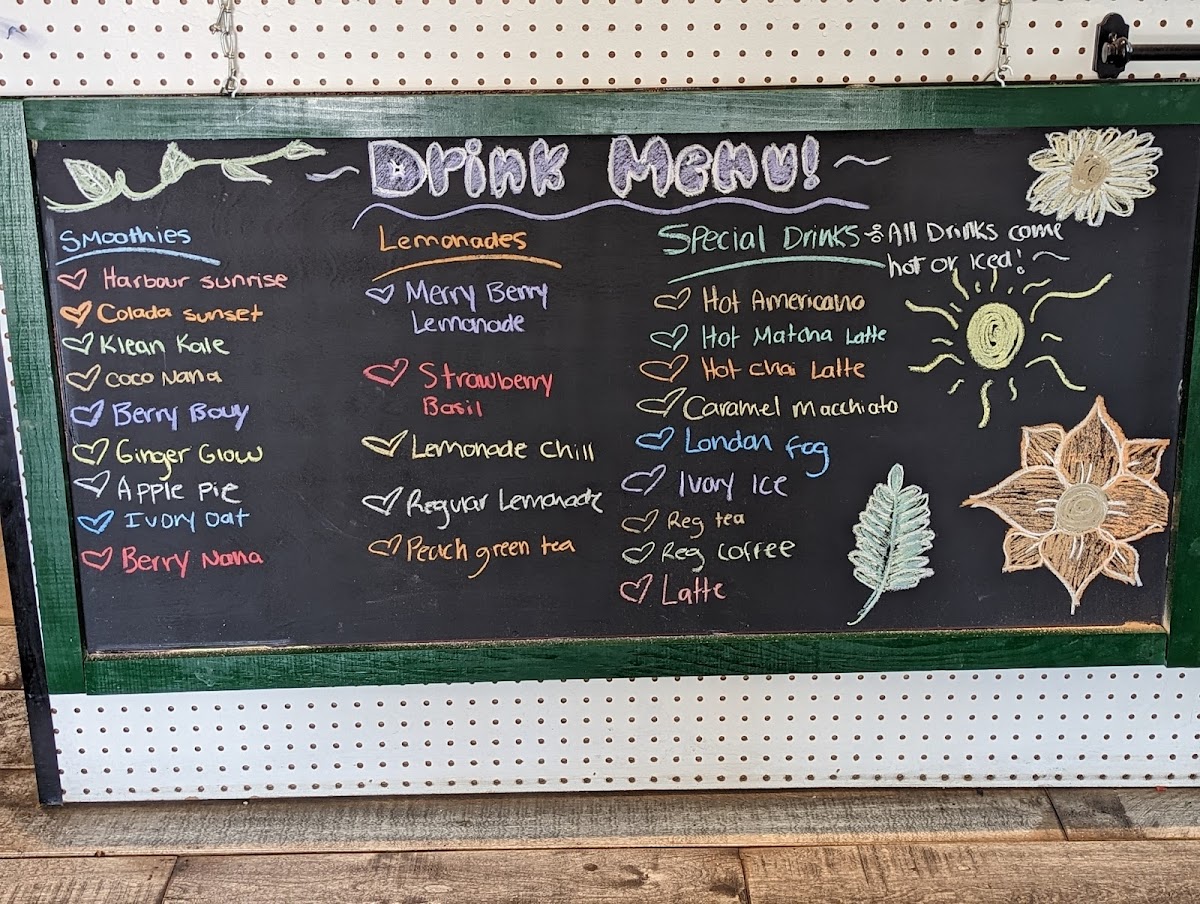 Drink Menu!
Smoothies
Harbour sunrise
Colada sunset
Klean Kale
Coco Nana
Berry Bouy
Ginger Glow
Apple pie
Ivory oat
Berry Nana
Lemonades
Merry Berry
Lemonade
Strawberry
Basil
Lemonade Chill
Regular Lemonade
Peach green tea
Special Drinks
All Drinks come
hot or iced!
Hot Americano
Hot Matcha Latte
Hot Chai Latte
Caramel Macchiato
London fog
Ivory Ice
Reg tea
Reg coffee
Latte